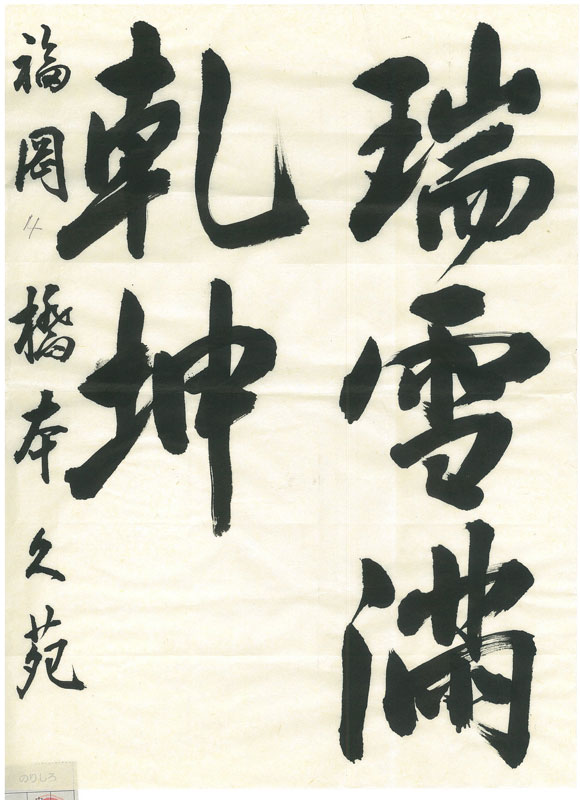 瑞雪満
乾坤
福岡 4 橋本久苑
のりしろ